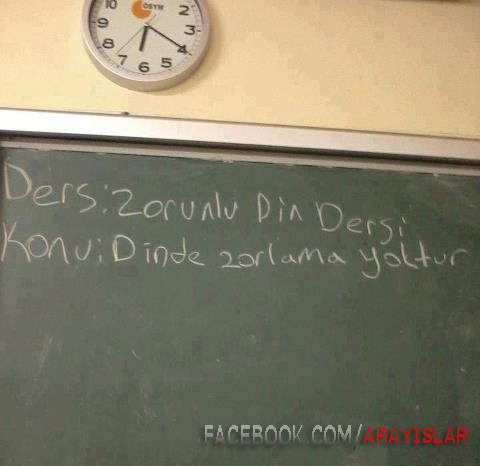 10
2
9
3
8
4
7
6
5
ÖSYM
Ders: Zorunlu Din Dersi
Konu: Dinde zorlama yoktur
FACEBOOK.COM/ARAYISLAR